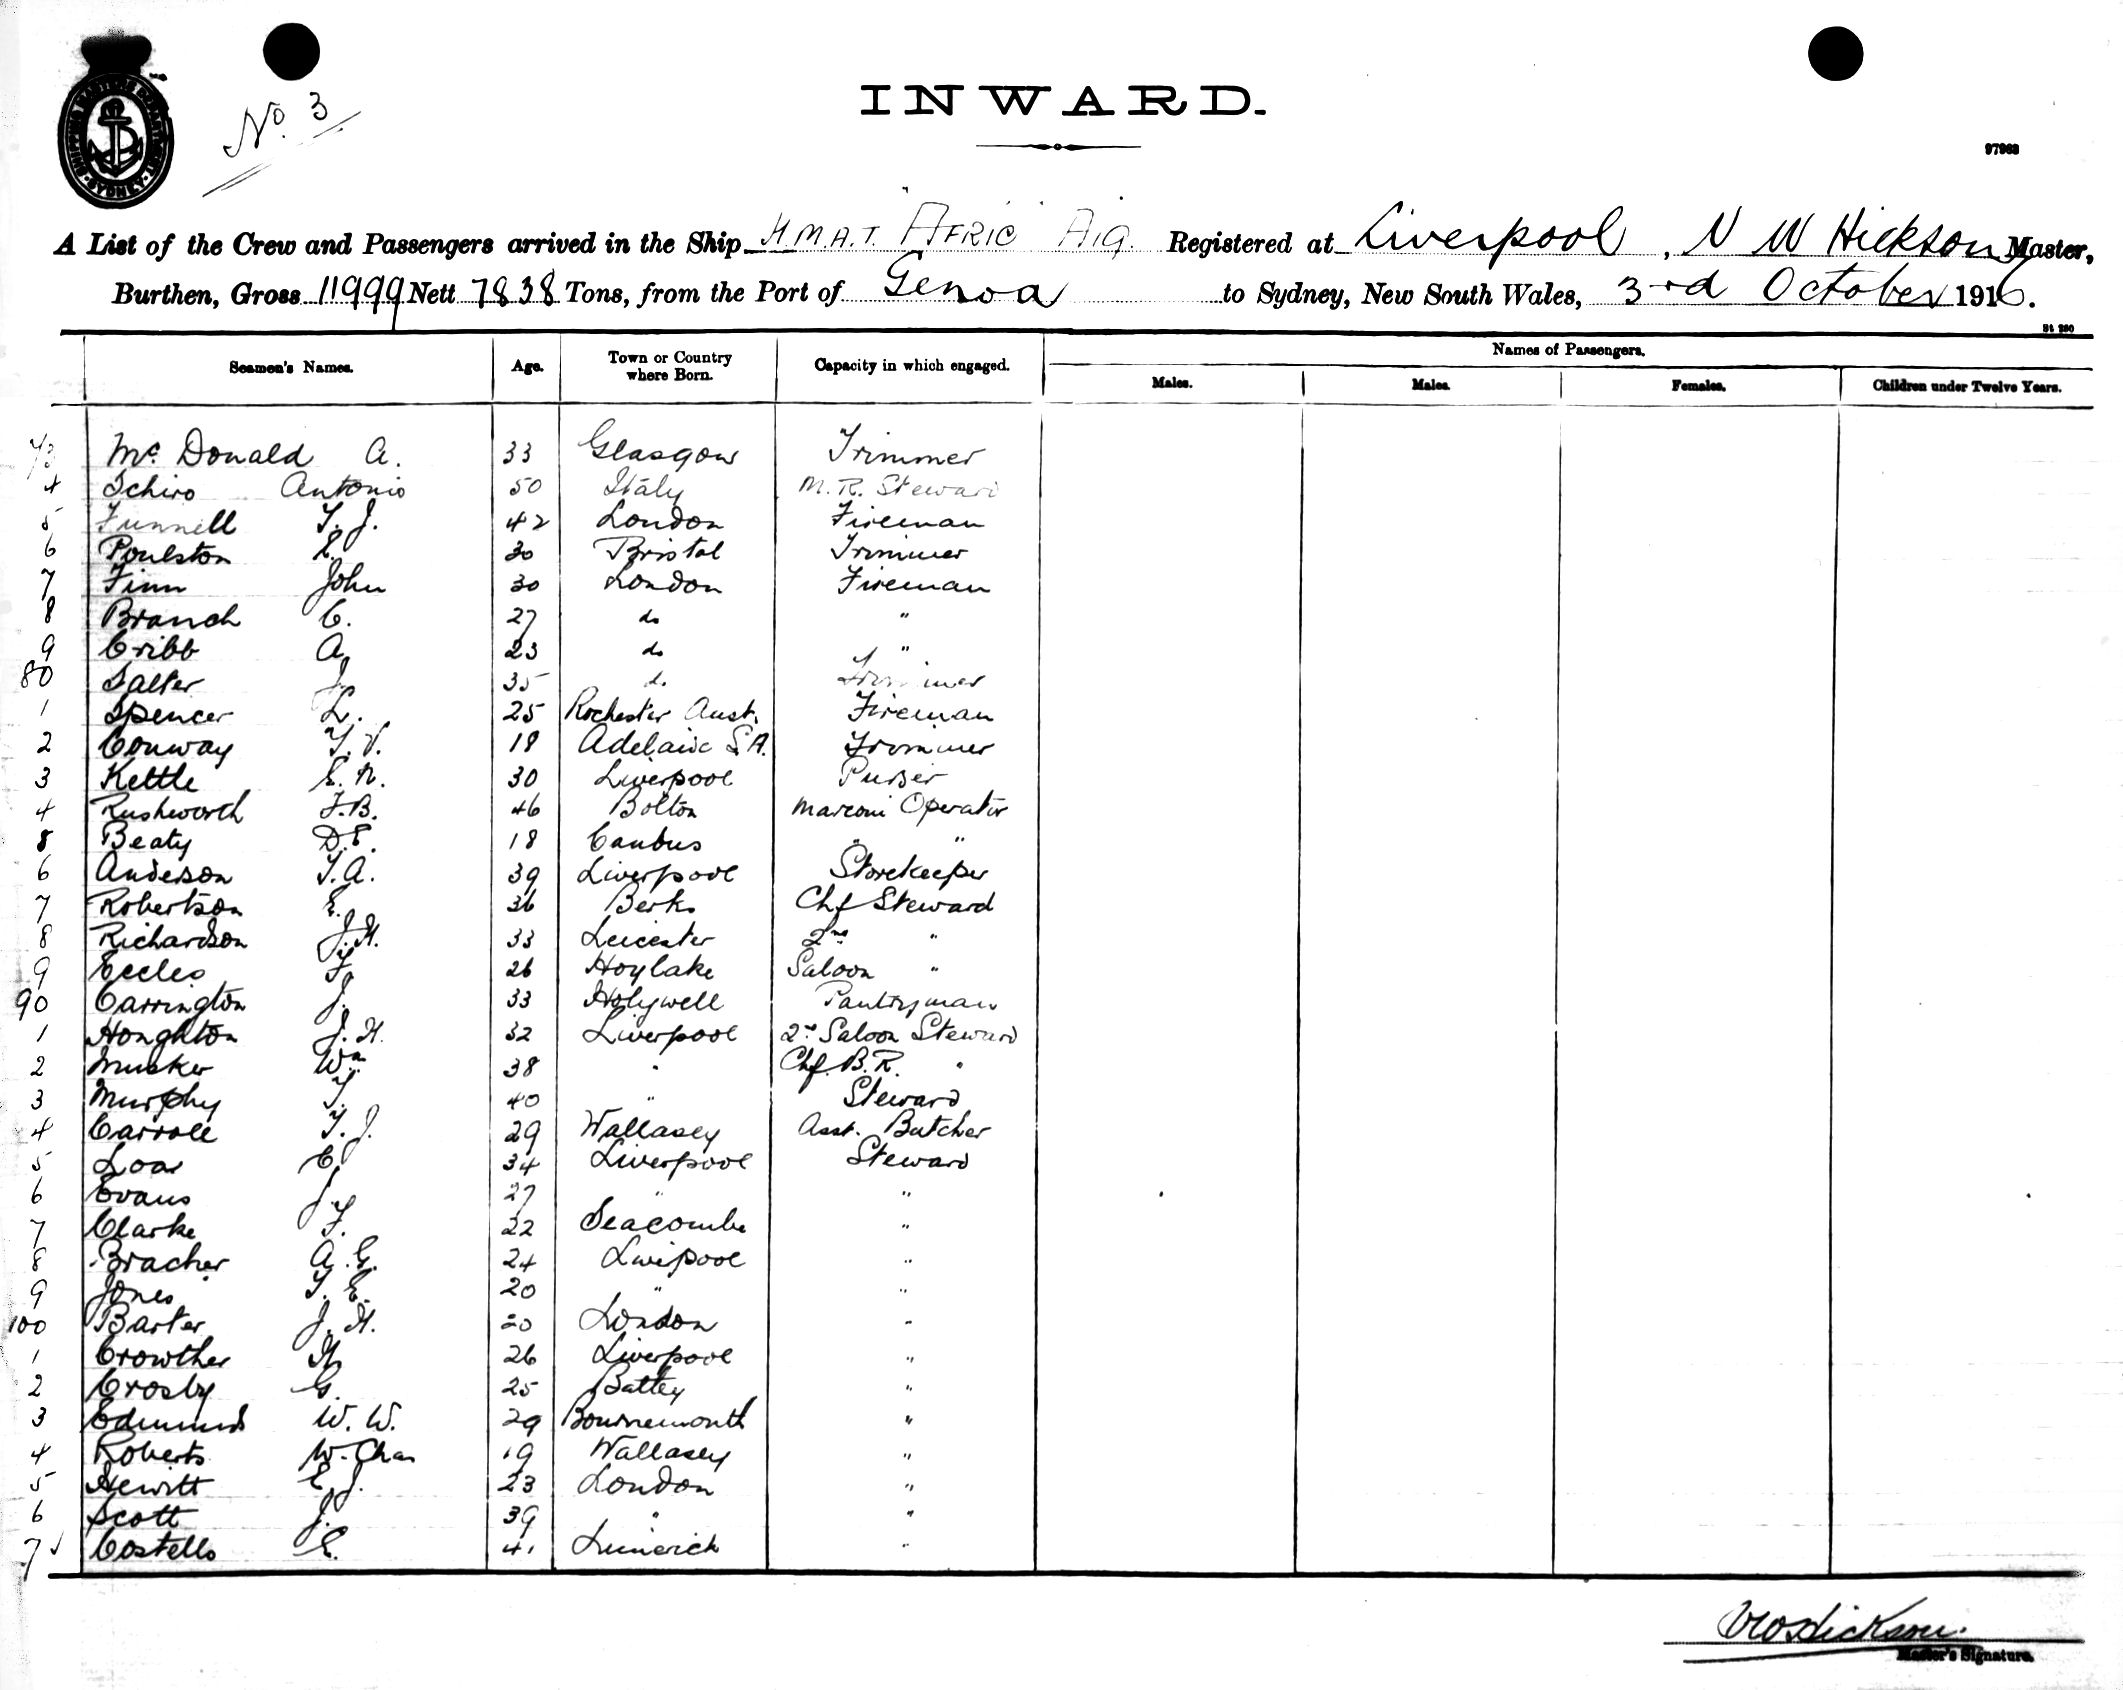 No. 3
SHIPPING MASTERS DEPARTMENT SYDNEY
INWARD.
97963
A List of the Crew and Passengers arrived in the Ship H.M.A.T. AFRIC A19. Registered at Liverpool, N W Hickson Master,
Burthen, Gross 11999 Nett 7838 Tons, from the Port of Genoa to Sydney, New South Wales, 3rd October 1916.
Seamen's Names. Age. Town or Country where Born. Capacity in which engaged. Names of Passengers.
Males. Males. Females. Children under Twelve Years.
73 McDonald A. 33 Glasgow Trimmer
4 Schiro Antonio 50 Italy M. R. Steward
5 Funnell T. J. 42 London Fireman
6 Poulston E. 30 Bristol Trimmer
7 Finn John 30 London Fireman
8 Branch C. 27 do "
9 Cribb A. 23 do "
80 Salter J. 35 do Trimmer
1 Spencer L. 25 Rochester Aust. Fireman
2 Conway T. V. 18 Adelaide S.A. Trimmer
3 Kettle E. N. 30 Liverpool Purser
4 Rushworth F.B. 46 Bolton Marconi Operator
5 Beaty D.E. 18 " "
6 Anderson T.A. 39 Liverpool Storekeeper
7 Robertson E. 36 Berks Chf Steward
8 Richardson J.H. 33 Leicester 2nd "
9 Eccles F. 26 Hoylake Saloon "
90 Carrington J. 33 Holywell Pantryman
1 Houghton J. H. 32 Liverpool 2nd Saloon Steward
2 Musker Wm 38 " Chf. B.R. "
3 Murphy T. 40 " Steward
4 Carroll T. J. 29 Wallasey Asst. Butcher
5 34 Liverpool Steward
6 Evans J. 27 " "
7 Clarke F. 22 Seacombe "
8 Bracher A. G. 24 Liverpool "
9 Jones T. E. 20 " "
100 Barter J. H. 20 London "
1 Crowther H. 26 Liverpool "
2 Crosby G. 25 Batley "
3 Edmunds W. W. 29 Bournemouth "
4 Roberts W. Chas 19 Wallasey "
5 Hewitt E J. 23 London "
6 Scott J. 39 " "
7 Costello E. 41 Limerick "
Master's Signature.